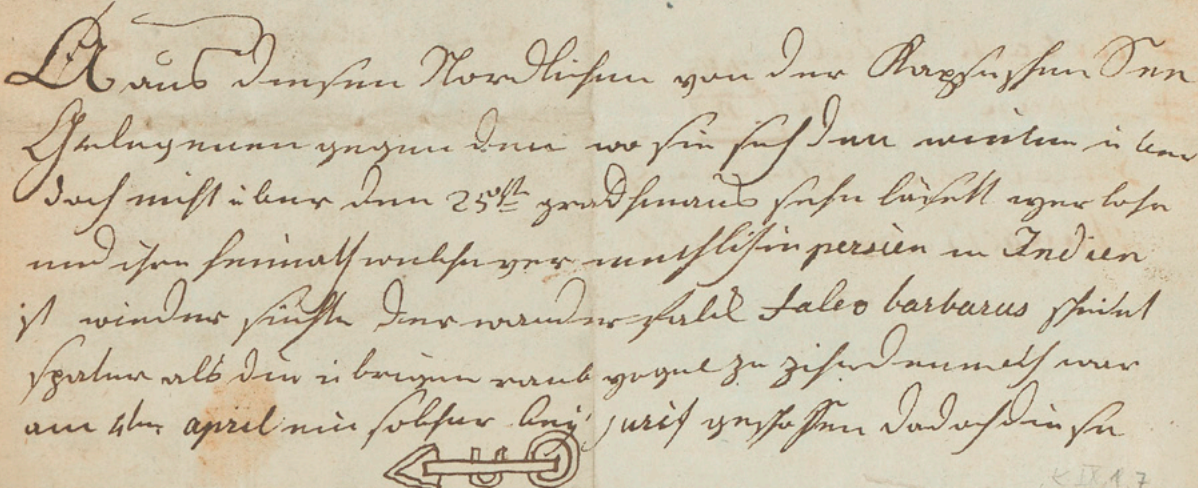 aus diesen Nordlichen von der Kapsischen See
Gelegenen gegenden wo sie sich den winter über
doch nicht über den 25ste grad hinaus sehn läsett verlohr
und ihre heimath welche vermuthlich in persien in Indien
ist wieder suchte der wander falk falco barbarus scheint
spater als die übrigen raub vogel zu zihen den noch war
am 4ten april ein solcher bey zurich geschossen da doch diese
K IX 1 7